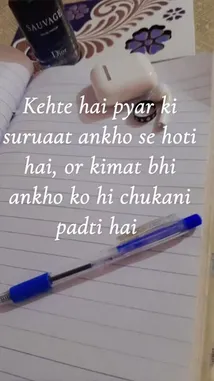 SAUVAGE
Dior
Kehte hai pyar ki
suruaat ankho se hoti
hai, or kimat bhi
ankho ko hi chukani
padti hai